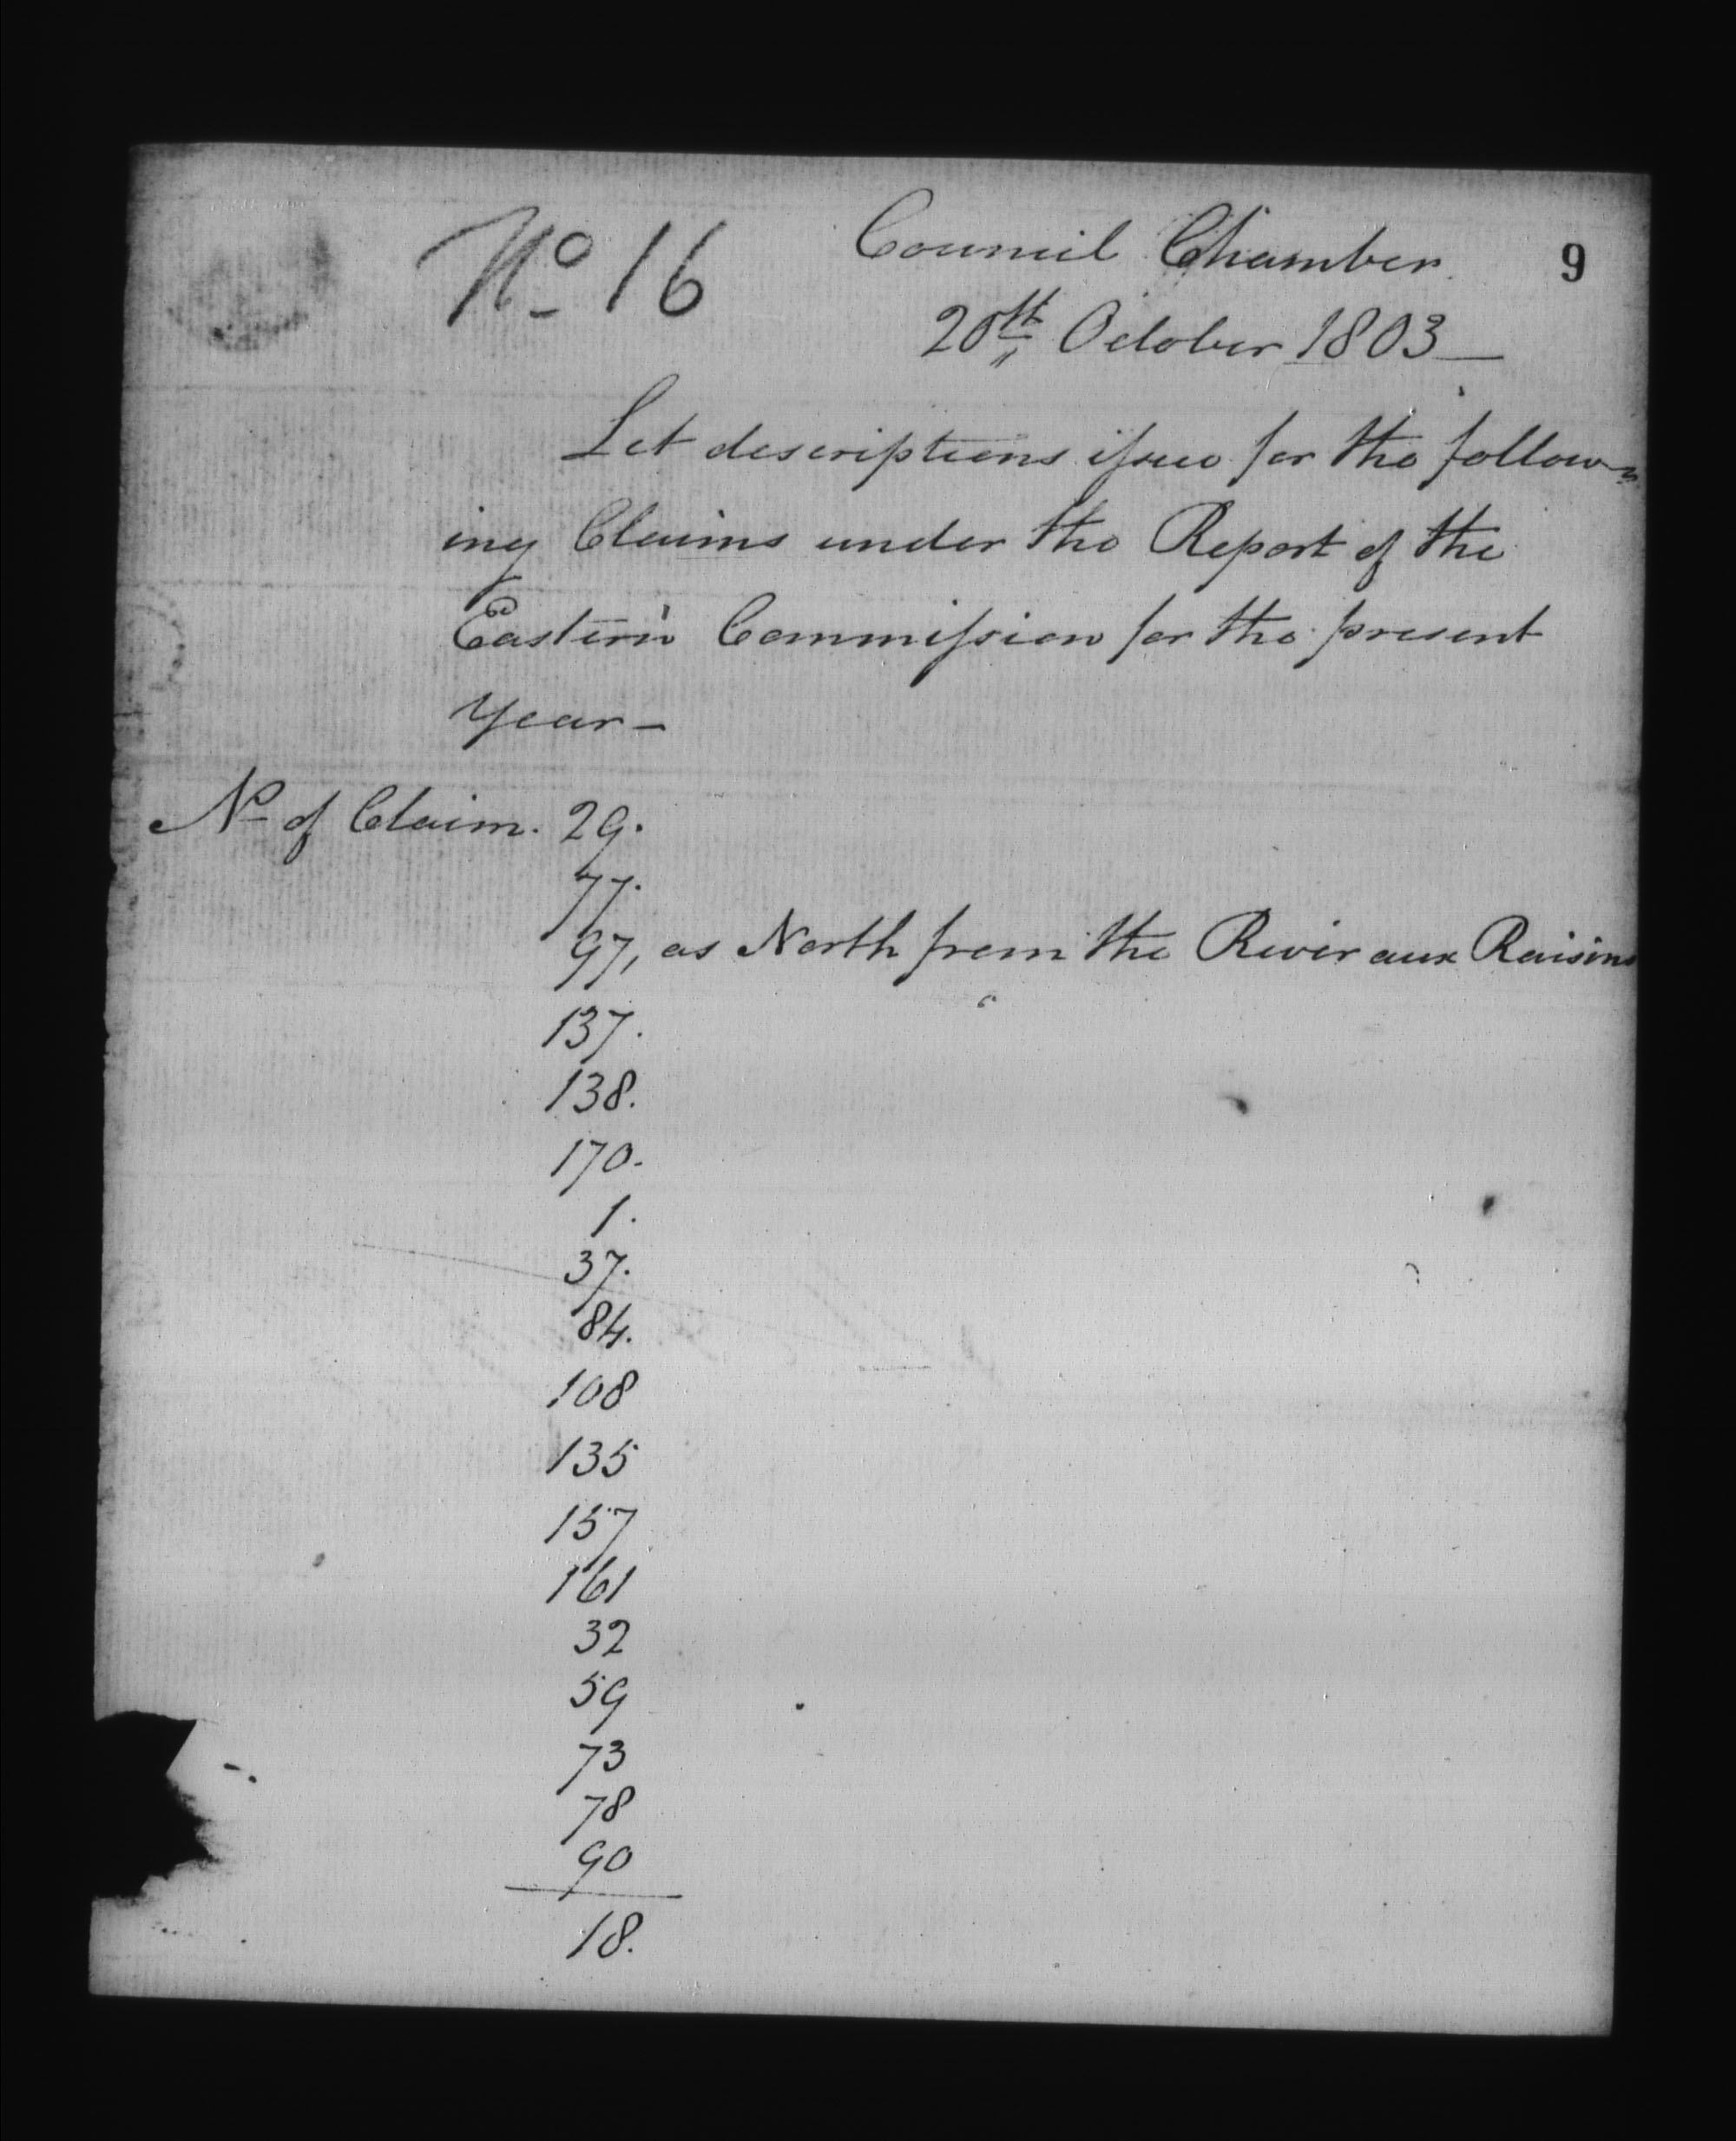 No 16
Council Chamber 9
20th October 1803
Let descriptions issue for the follow-
ing Claims under the Report of the
Eastern Commission for the present
Year —
No of Claim. 29.
77.
97, as North from the River aux Raisins
137.
138.
170.
1.
37.
84.
108
135
157
161
32
59
73
78
90
18.